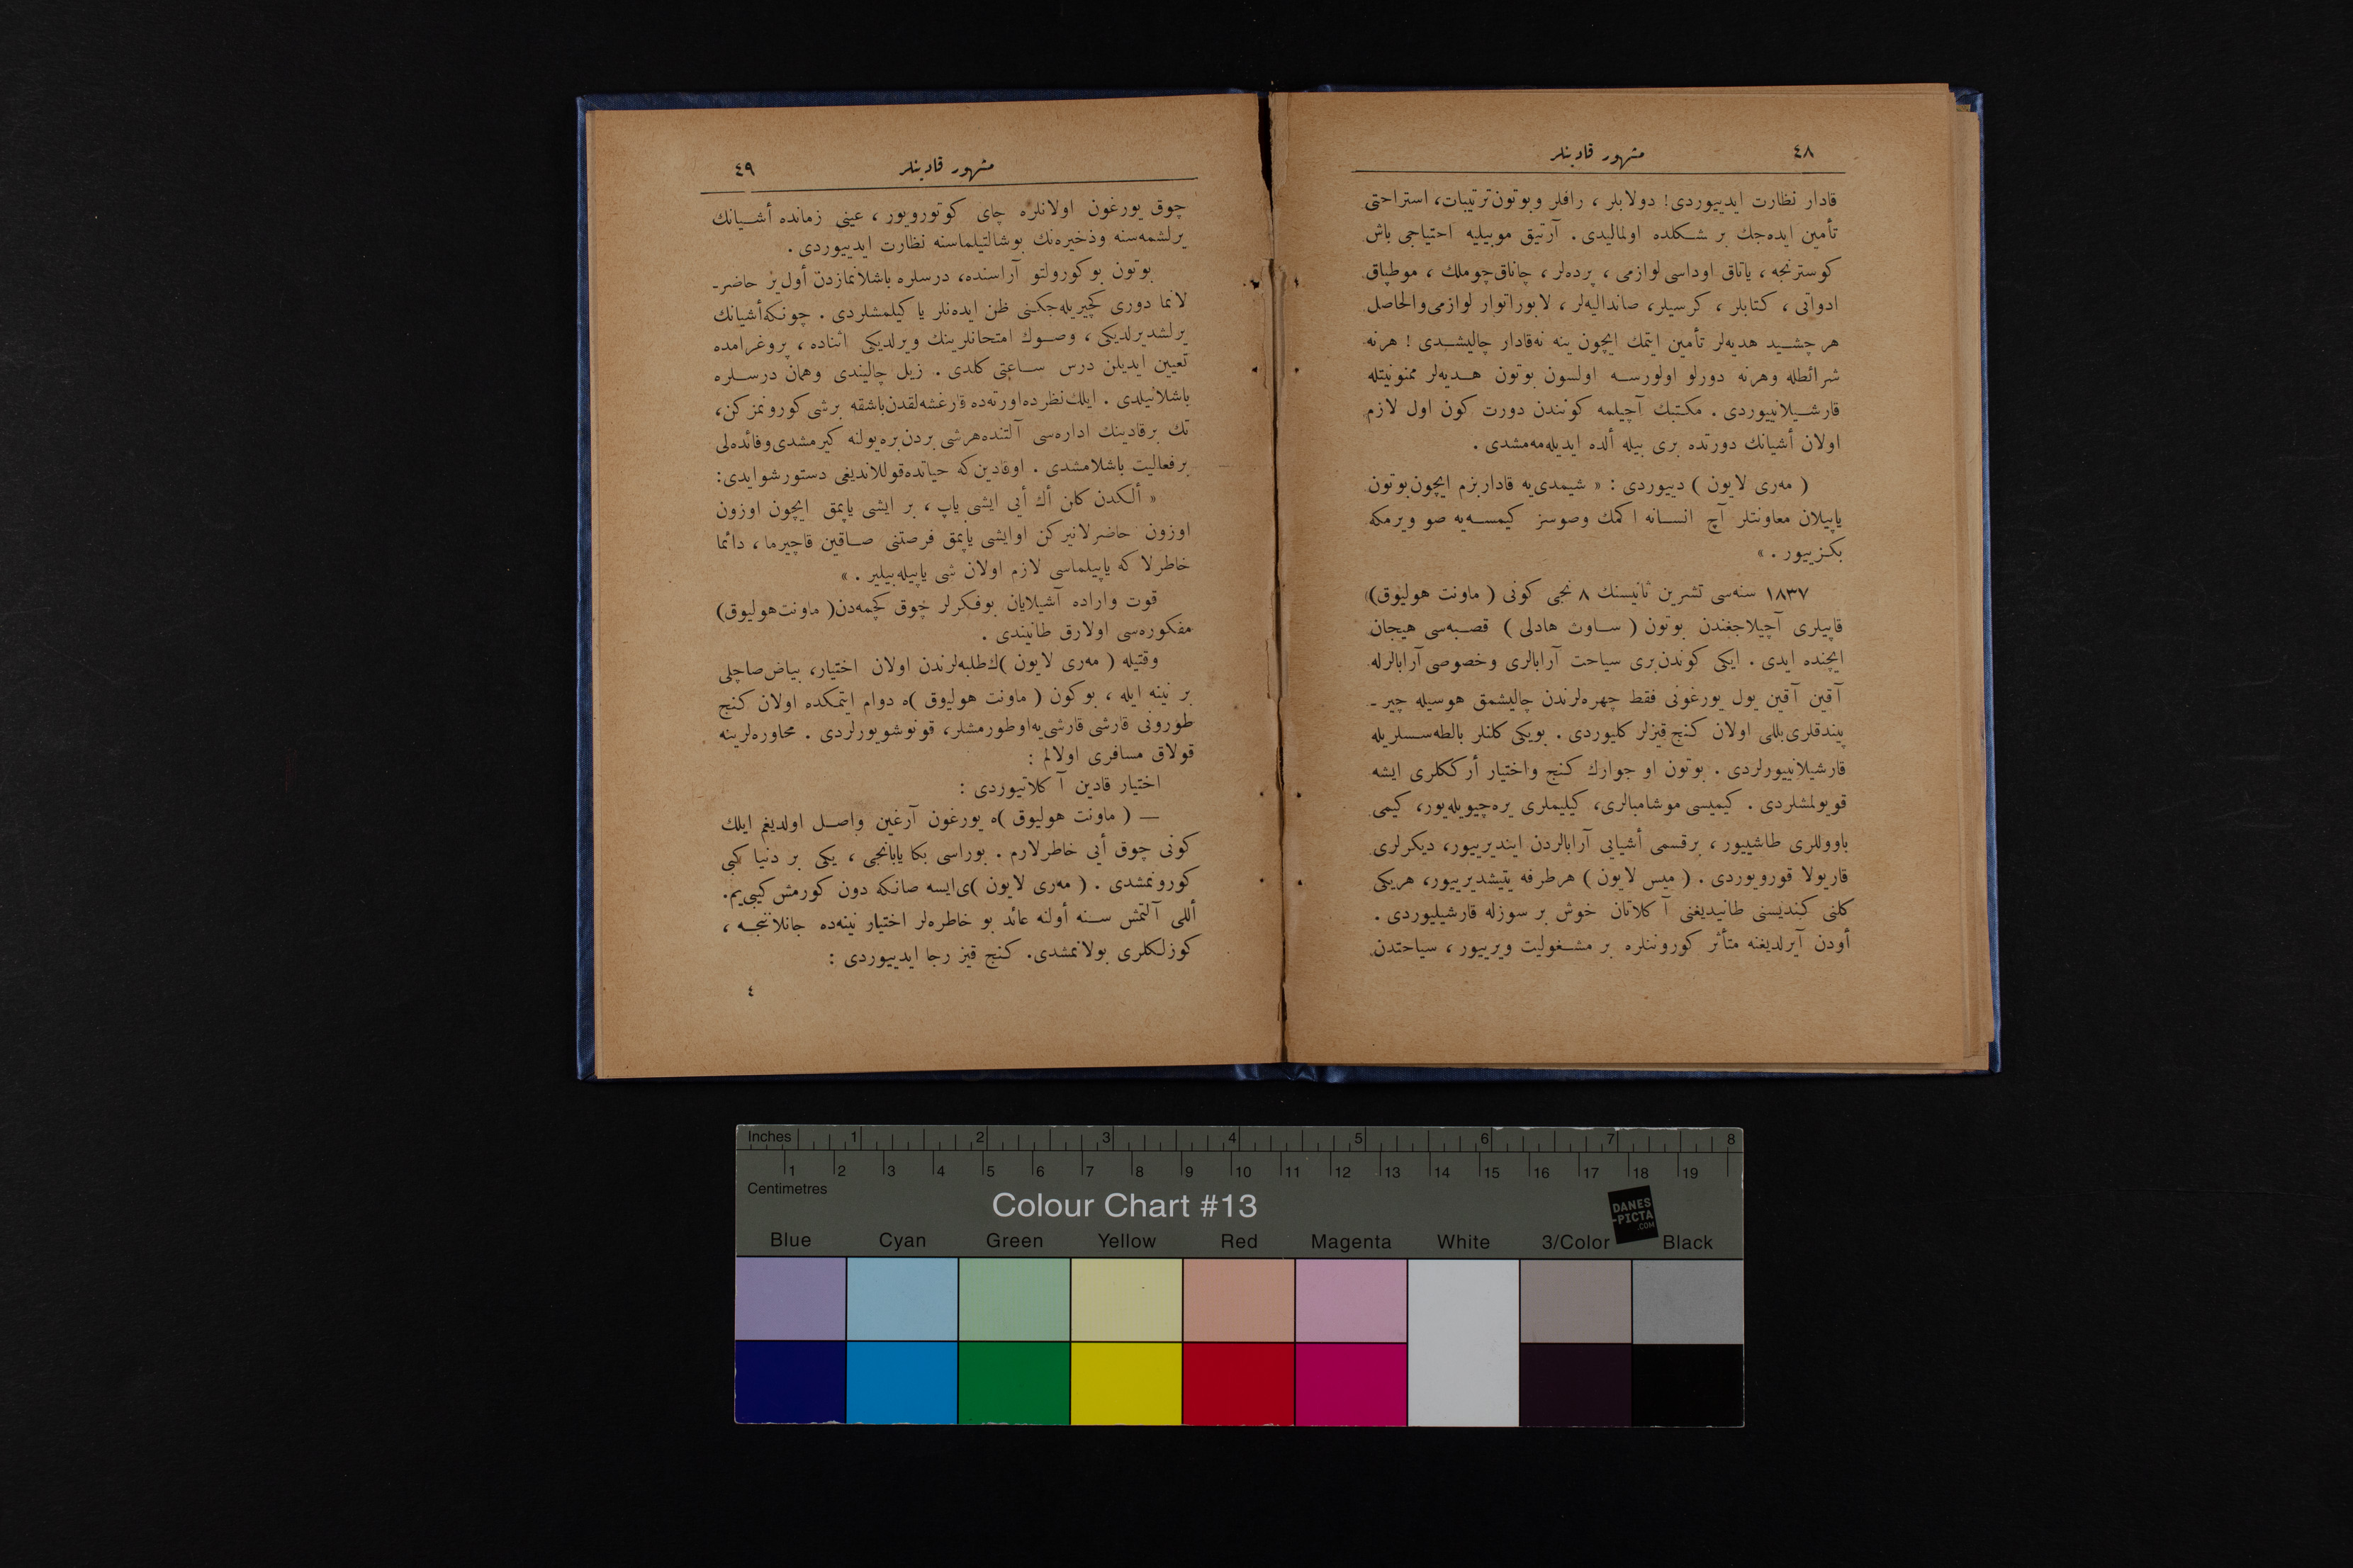 ٤٨
مشهور قادینلر
قادار نظارت ایدییوردی! دولابلر ، رافلر وبوتون ترتیبات، استراحتی
تأمین ایده‌جك بر شکلده اولمالیدی . آرتیق موبیلیه احتیاجی باش
کوسترنجه ، یاتاق اوداسی لوازمی ، پرده‌لر ، چاناق چوملك ، موطباق
ادواتی ، کتابلر ، کرسیلر، صاندالیه‌لر ، لابوراتوار لوازمی والحاصل
هر چشید هدیه‌لر تأمین ایتمك ایچون ینه نه‌قادار چالیشدی ! هرنه
شرائطله وهرنه دورلو اولورسه اولسون بوتون هدیه‌لر ممنونیتله
قارشیلانییوردی . مکتبك آچیلمه کونندن دورت کون اول لازم
اولان أشیانك دورتده بری بیله ألده ایدیله‌مه‌مشدی .
( مه‌ری لایون ) دییوردی : « شیمدی‌یه قادار بزم ایچون بوتون
یاپیلان معاونتلر آچ انسانه اکمك وصوسز کیمسه‌یه صو ویرمکه
بکزییور . »
١٨٣٧ سنه‌سی تشرین ثانیسنك ٨ نجی کونی ( ماونت هولیوق)
قاپیلری آچیلاجغندن بوتون ( ساوث هادلی ) قصبه‌سی هیجان
ایچنده ایدی . ایکی کوندن بری سیاحت آرابالری وخصوصی آرابالرله
آقین آقین یول یورغونی فقط چهره‌لرندن چالیشمق هوسیله چیر ـ
پیندقلری بللی اولان کنج قیزلر کلیوردی . بویکی کلنلر بالطه سسلریله
قارشیلانییورلردی . بوتون او جوارك کنج واختیار أرککلری ایشه
قویولمشلردی . کیمیسی موشامبالری، کیلیملری یره چیویله‌یور، کیمی
باووللری طاشییور ، برقسمی أشیایی آرابالردن ایندیرییور، دیکرلری
قاریولا قورویوردی . ( میس لایون ) هرطرفه یتیشدیرییور، هریکی
کلنی کندیسنی طانیدیغنی آ کلاتان خوش بر سوزله قارشیلیوردی .
أودن آیرلدیغنه متأثر کوروننلره بر مشغولیت ویرییور ، سیاحتدن
مشهور قادینلر
٤٩
چوق یورغون اولانلره چای کوتورویور ، عینی زمانده أشیانك
یرلشمه‌سنه وذخیره‌نك بوشالتیلماسنه نظارت ایدییوردی .
بوتون بو کورولتو آراسنده، درسلره باشلانمازدن أول بر حاضر ـ
لانما دوری کچیریله‌جکنی ظن ایده‌نلر یا کیلمشلردی . چونکه أشیانك
یرلشدیرلدیکی ، وصوك امتحانلرینك ویرلدیکی اثناده ، پروغرامده
تعیین ایدیلن درس ساعتی کلدی . زیل چالیندی وهمان درسلره
باشلانیلدی . ایلك نظرده اورته‌ده قارغشه‌لقدن باشقه برشی کورونمز کن،
تك برقادینك اداره‌سی آلتنده هرشی بردن بره یولنه کیرمشدی وفائده‌لی
برفعالیت باشلامشدی . اوقادین که حیاتده قوللاندیغی دستور شوایدی:
« ألکدن کلن أك أیی ایشی یاپ ، بر ایشی یاپمق ایچون اوزون
اوزون حاضرلانیرکن اوایشی یاپمق فرصتنی صاقین قاچیرما ، دائما
خاطرلا که یاپیلماسی لازم اولان شی یاپیله‌بیلیر . »
قوت واراده آشیلایان بوفکرلر چوق کچمه‌دن( ماونت هولیوق)
مفکوره‌سی اولارق طانیندی .
وقتیله ( مه‌ری لایون )ك طلبه‌لرندن اولان اختیار، بیاض صاچلی
بر نینه ایله ، بوکون ( ماونت هولیوق )ه دوام ایتمکده اولان کنج
طورونی قارشی قارشی‌یه اوطورمشلر، قونوشویورلردی . محاوره‌لرینه
قولاق مسافری اولالم :
اختیار قادین آ کلاتیوردی :
— ( ماونت هولیوق )ه یورغون آرغین واصل اولدیغم ایلك
کونی چوق أیی خاطرلارم . بوراسی بکا یابانجی ، یکی بر دنیا کبی
کورونمشدی . ( مه‌ری لایون )ی ایسه صانکه دون کورمش کیبی‌یم.
أللی آلتمش سنه أولنه عائد بو خاطره‌لر اختیار نینه‌ده جانلاننجه ،
کوزلکلری بولانمشدی. کنج قیز رجا ایدییوردی :
٤
Inches 1 2 3 4 5 6 7 8
1 2 3 4 5 6 7 8 9 10 11 12 13 14 15 16 17 18 19
Centimetres
Colour Chart #13
DANES
-PICTA
.COM
Blue Cyan Green Yellow Red Magenta White 3/Color Black